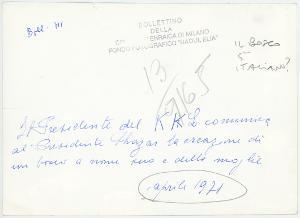 BOLLETTINO
DELLA
EBRAICA DI MILANO
FONDO FOTOGRAFICO "RAOUL ELIA"
IL BOSCO
È
ITALIANO?
13
Il Presidente del KKL comunica
al Presidente Shazar la creazione di
un bosco a nome suo e della moglie
aprile 1971